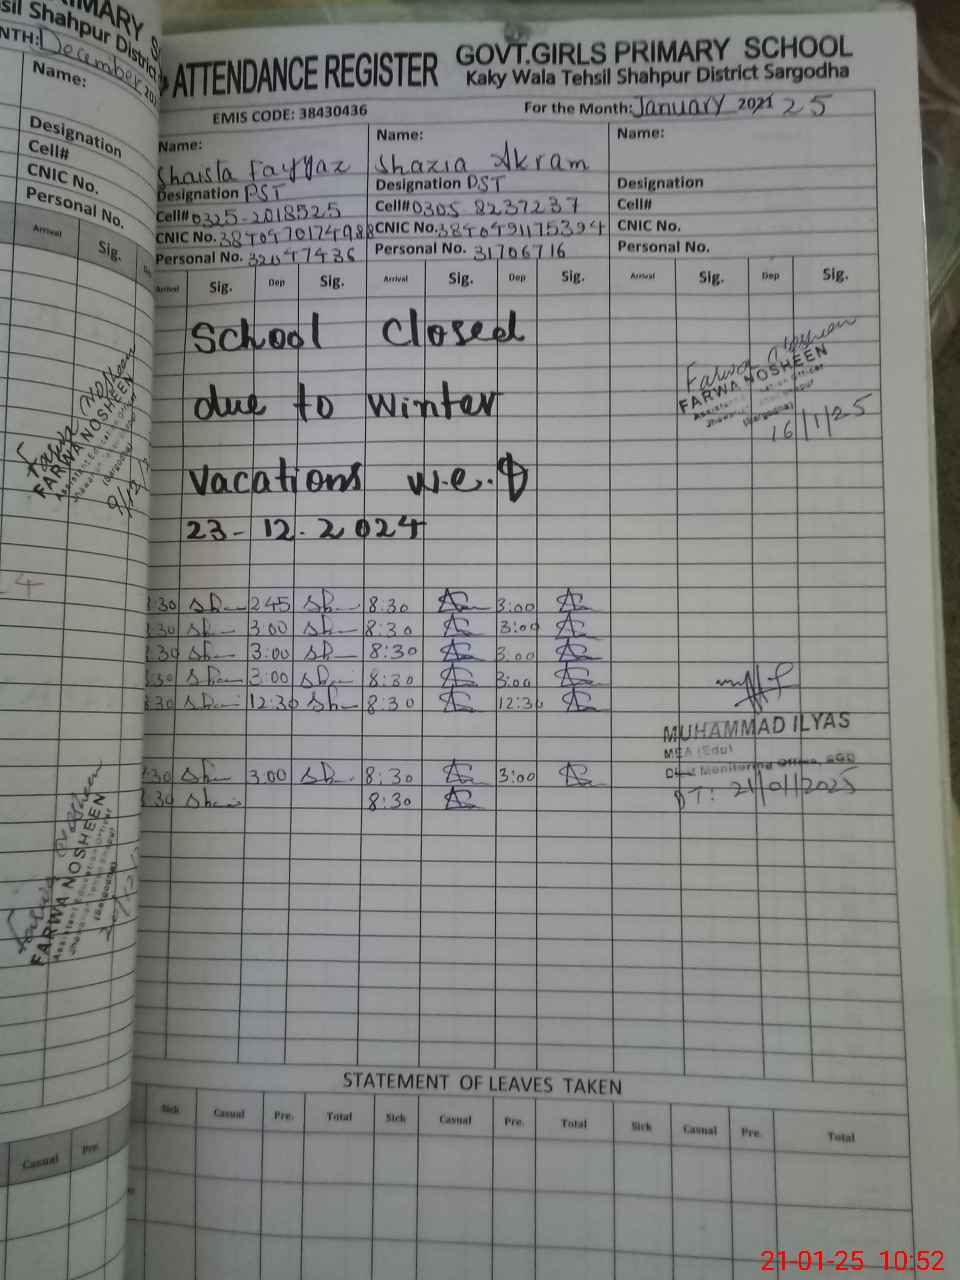 IMARY S
sil Shahpur District
NTH: December 20
Name:
Designation
Cell#
CNIC No.
Personal No.
Arrival Sig.
FARWA NOSHEEN
FARWA NOSHEEN
Casual Pre.
ATTENDANCE REGISTER GOVT.GIRLS PRIMARY SCHOOL
Kaky Wala Tehsil Shahpur District Sargodha
EMIS CODE: 38430436 For the Month: January 2021 25
Name: Name: Name:
Shaista Fayyaz Shazia Akram
Designation PST Designation PST Designation
Cell# 0325-2018525 Cell# 0305-8237237 Cell#
CNIC No. CNIC No. 3840491175394 CNIC No.
Personal No. 32047436 Personal No. 31706716 Personal No.
Arrival Sig. Dep Sig. Arrival Sig. Dep Sig. Arrival Sig. Dep Sig.
School Closed
due to Winter
Vacations w.e.f
23-12-2024
Farwa Nosheen
FARWA NOSHEEN
16/1/25
:30 Sha 2:45 Sha 8:30 3:00
:30 Sha 3:00 Sha 8:30 3:00
:30 Sha 3:00 Sha 8:30 3:00
:30 Sha 3:00 Sha 8:30 3:00
:30 Sha 12:30 Sha 8:30 12:30
MUHAMMAD ILYAS
MEA (Edu)
Monitoring Office, SGD
DT: 21/01/2025
:30 Sha 3:00 Sha 8:30 3:00
:30 Sha 8:30
STATEMENT OF LEAVES TAKEN
Sick Casual Pre. Total Sick Casual Pre. Total Sick Casual Pre. Total
21-01-25 10:52